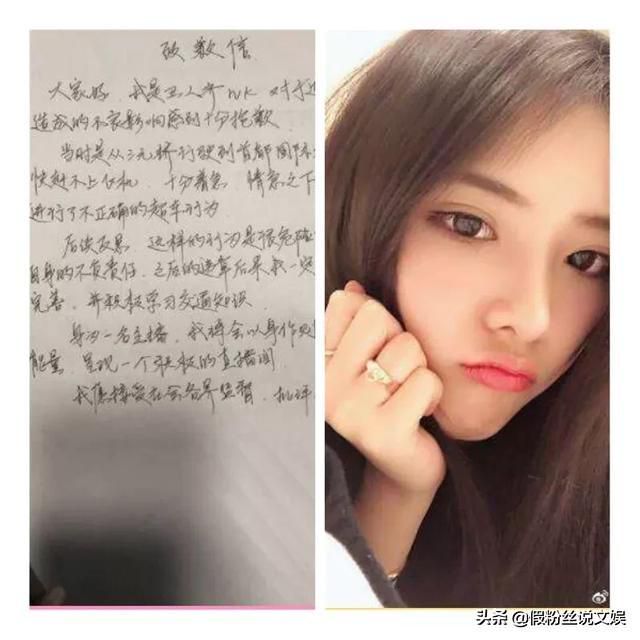 致歉信
大家好 我是主人公nvk 对于这
造成的不良影响感到十分抱歉
当时是从三元桥行驶到首都国际
快赶不上飞机，十分着急 情急之下
进行了不正确的超车行为
后续反思 这样的行为是很危险
自身的不负责任，之后的违章后果我一定
完善，并积极学习交通知识
身为一名主播，我将会以身作则
能量，呈现一个积极的直播间
我愿接受社会各界监督，批评
头条 @假粉丝说文娱